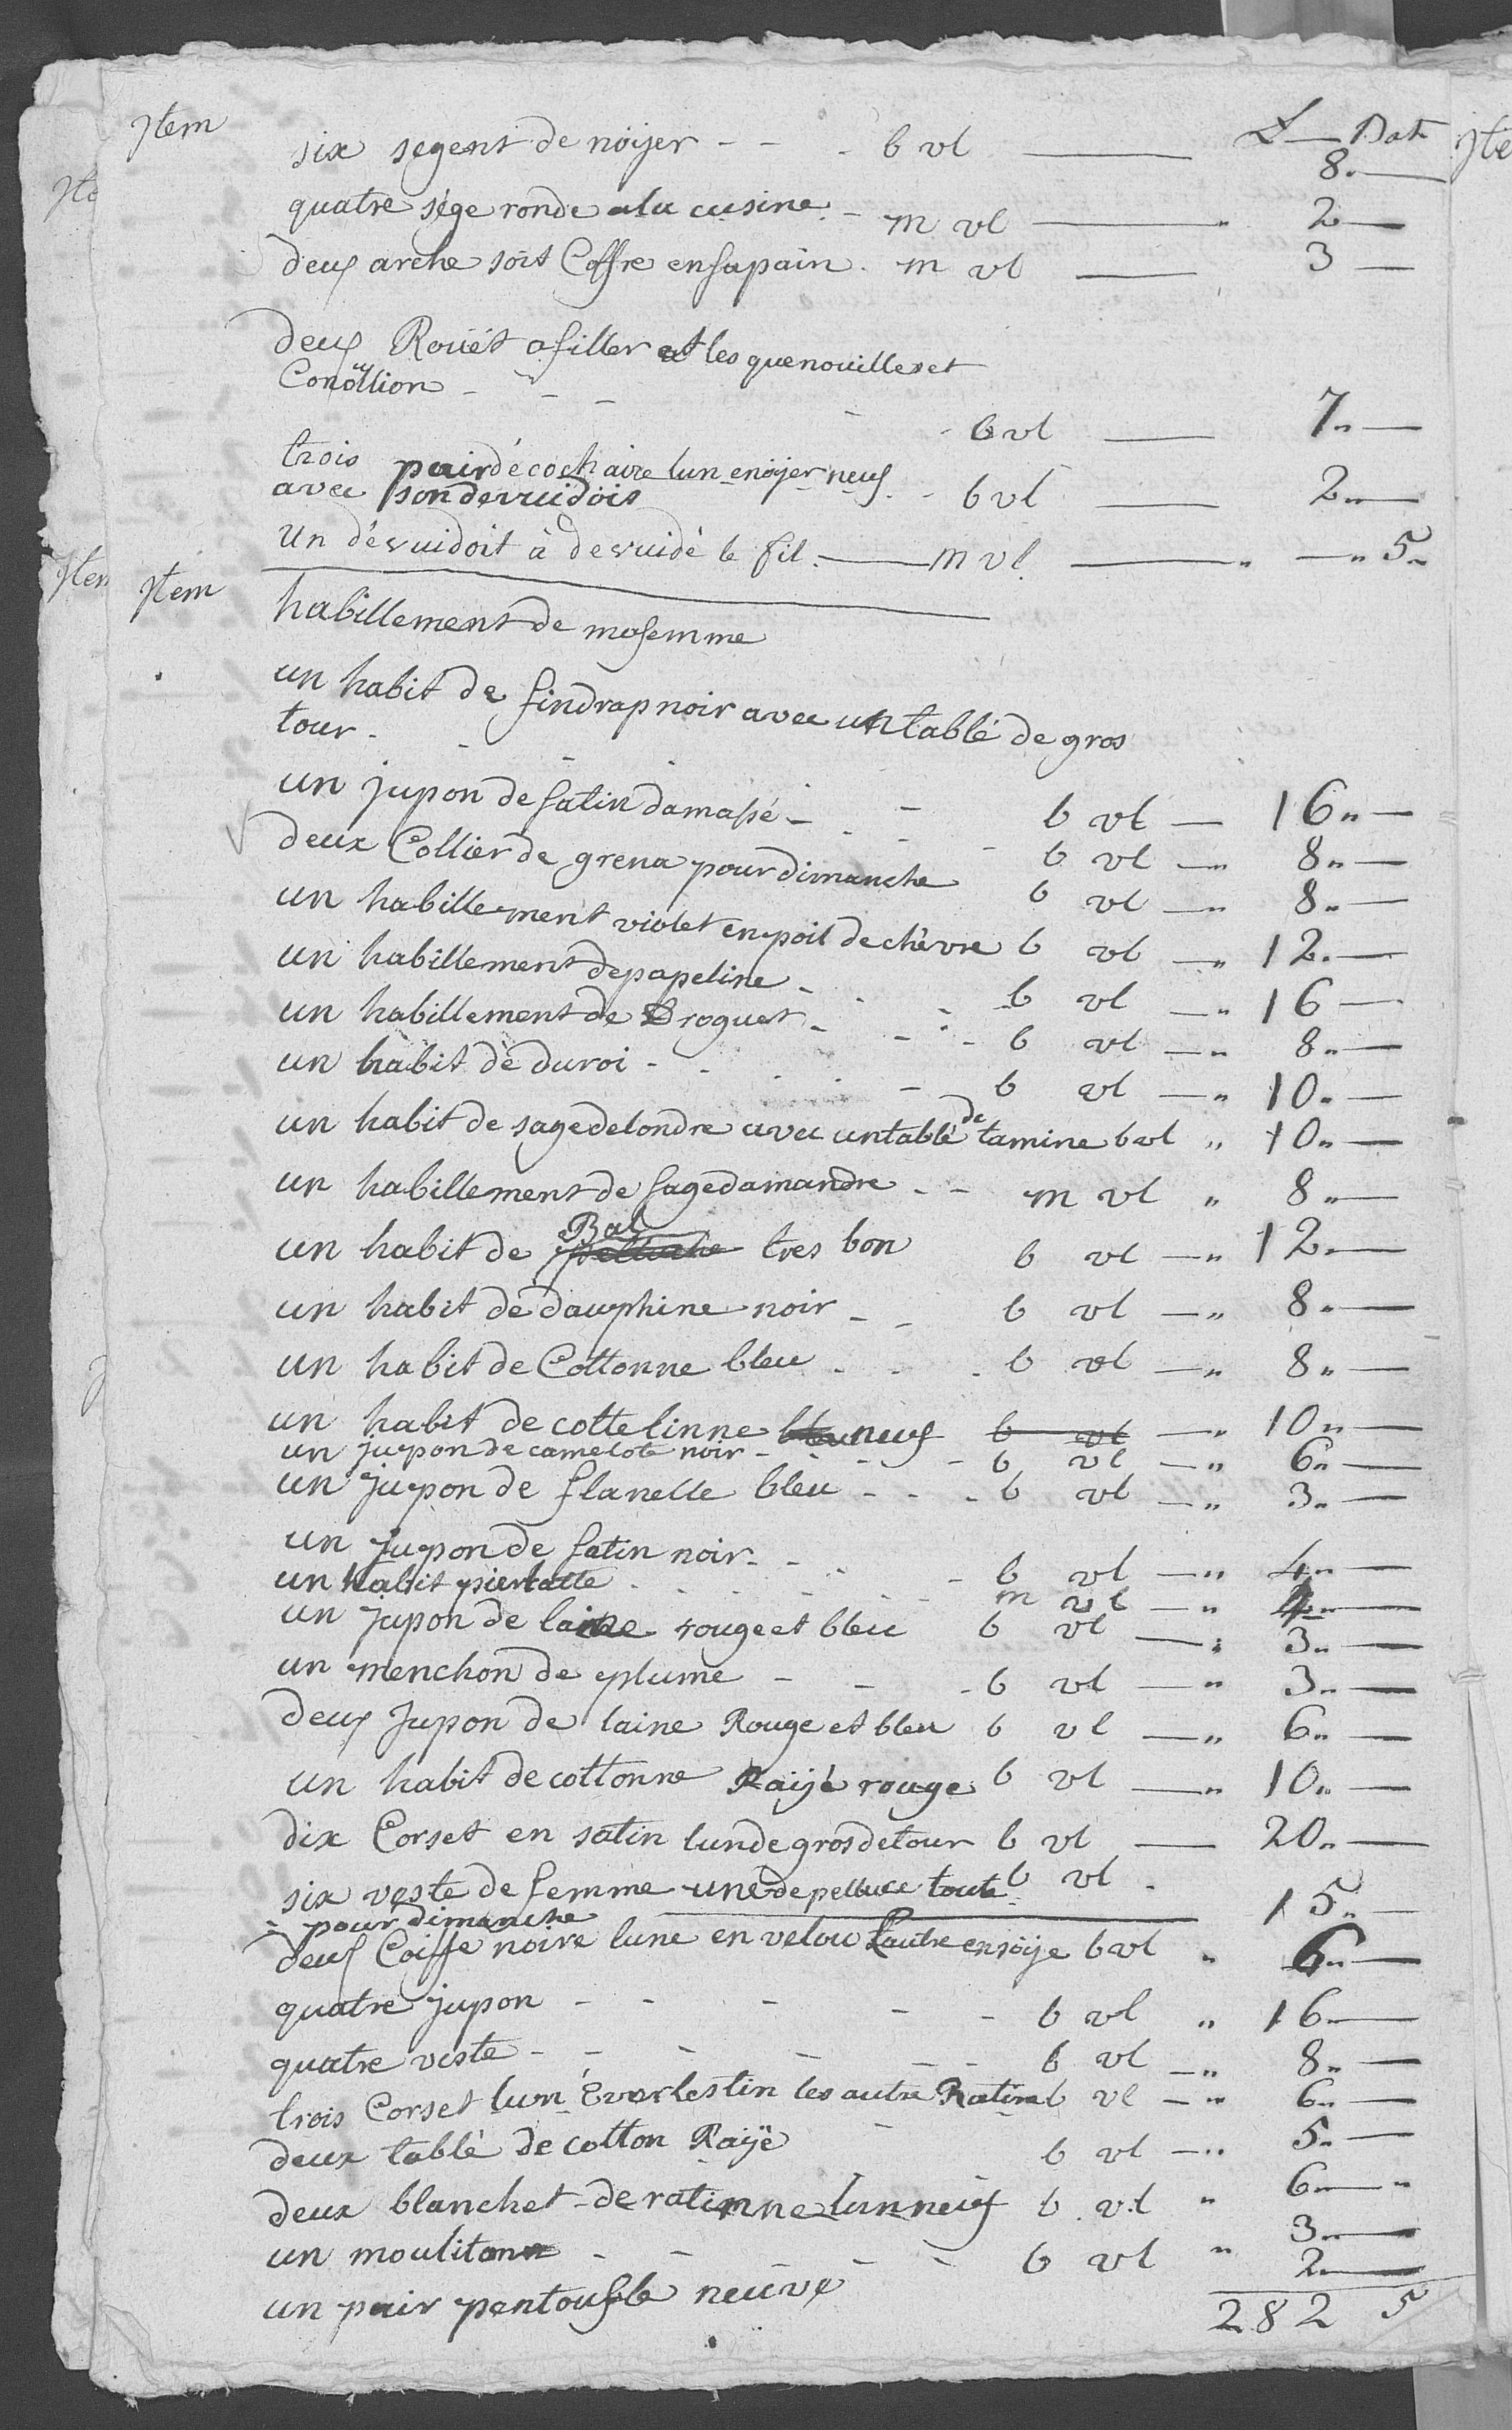 L — Bat
Item six segent de noijer - - - b vl — 8.—
quatre sége ronde ala cusine. - m vl — " 2 —
deux arche soit Coffre ensapain. m vl — 3 —
deux Rouét afiller et les quenouilleset
Conollion - - - - b vl — 7.. —
trois pair décochaire lun enoijer neuf
avec sonderuidois - b vl — 2.. —
Un déruidoit à deruidé le fil. — m vl. — " — " 5..
Item habillement de mafemme
un habit de findrap noir avec un tablé de gros
tour - - - - - b vl — 16.. —
un jupon de satin damassé - - - - b vl — " 8.. —
deux Collier de grena pour dimanche b vl — " 8.. —
un habillement violet enpoil de chèvre b vl — " 12.. —
un habillement depapeline - - - b vl — " 16 —
un habillement de Droguet - - - b vl — " 8.. —
un habit de duroi - - - - - b vl — " 10.. —
un habit de sagedelondre avec untablé de tamine b vl " 10.. —
un habillement de sagedamandre - - m vl " 8.. —
un habit de Bat tres bon b vl — " 12.. —
un habit de dauphine noir - - b vl — " 8.. —
un habit de Cottonne bleu - - - b vl — " 8.. —
un habit de cottelinne bleu neuf b vl — " 10.. —
un jupon de camelote noir - - - - b vl — " 6.. —
un jupon de flanelle bleu - - - b vl — " 3.. —
un jupon de satin noir - - - - b vl — " 4.. —
un habit - - - - - m vl — " 4.. —
un jupon de laine rouge et bleu b vl — " 3.. —
un menchon de plume - - - b vl — " 3.. —
deux Jupon de laine Rouge et bleu b vl — " 6.. —
un habit de cottonne Raijé rouge b vl — " 10.. —
dix Corset en satin lunde grosdetour b vl — 20.. —
six veste de femme une depelluce toute b vl - 15.. —
- pour dimanche
deux Coiffe noire lune en velou Lautre ensoije b vl " 6.. —
quatre jupon - - - - - b vl " 16 —
quatre veste - - - - - - b vl — " 8.. —
trois Corset lun Everlestin les autre Ratine b vl — " 6.. —
deux tablé de cotton Raijé - b vl — " 5.. —
deux blanchet de ratinne lun neuf b vl " 6.. — "
un moulitonn - - - - - b vl " 3.. —
un pair pantoufle neuve 2 —
282 5